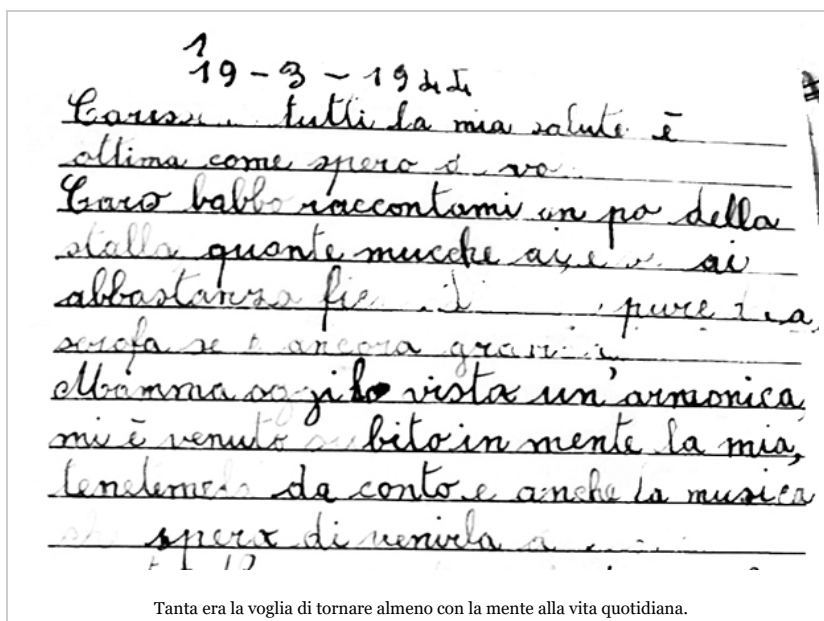 1
19-3-1944
tutti la mia salute è
ottima come spero
Caro babbo raccontami un po della
stalla quante mucche ai, e ai
abbastanza pure
scrofa se è ancora
Mamma oggi ho vista un'armonica
mi è venuto subito in mente la mia,
tenetemela da conto e anche la musica
spero di venirla a
Tanta era la voglia di tornare almeno con la mente alla vita quotidiana.